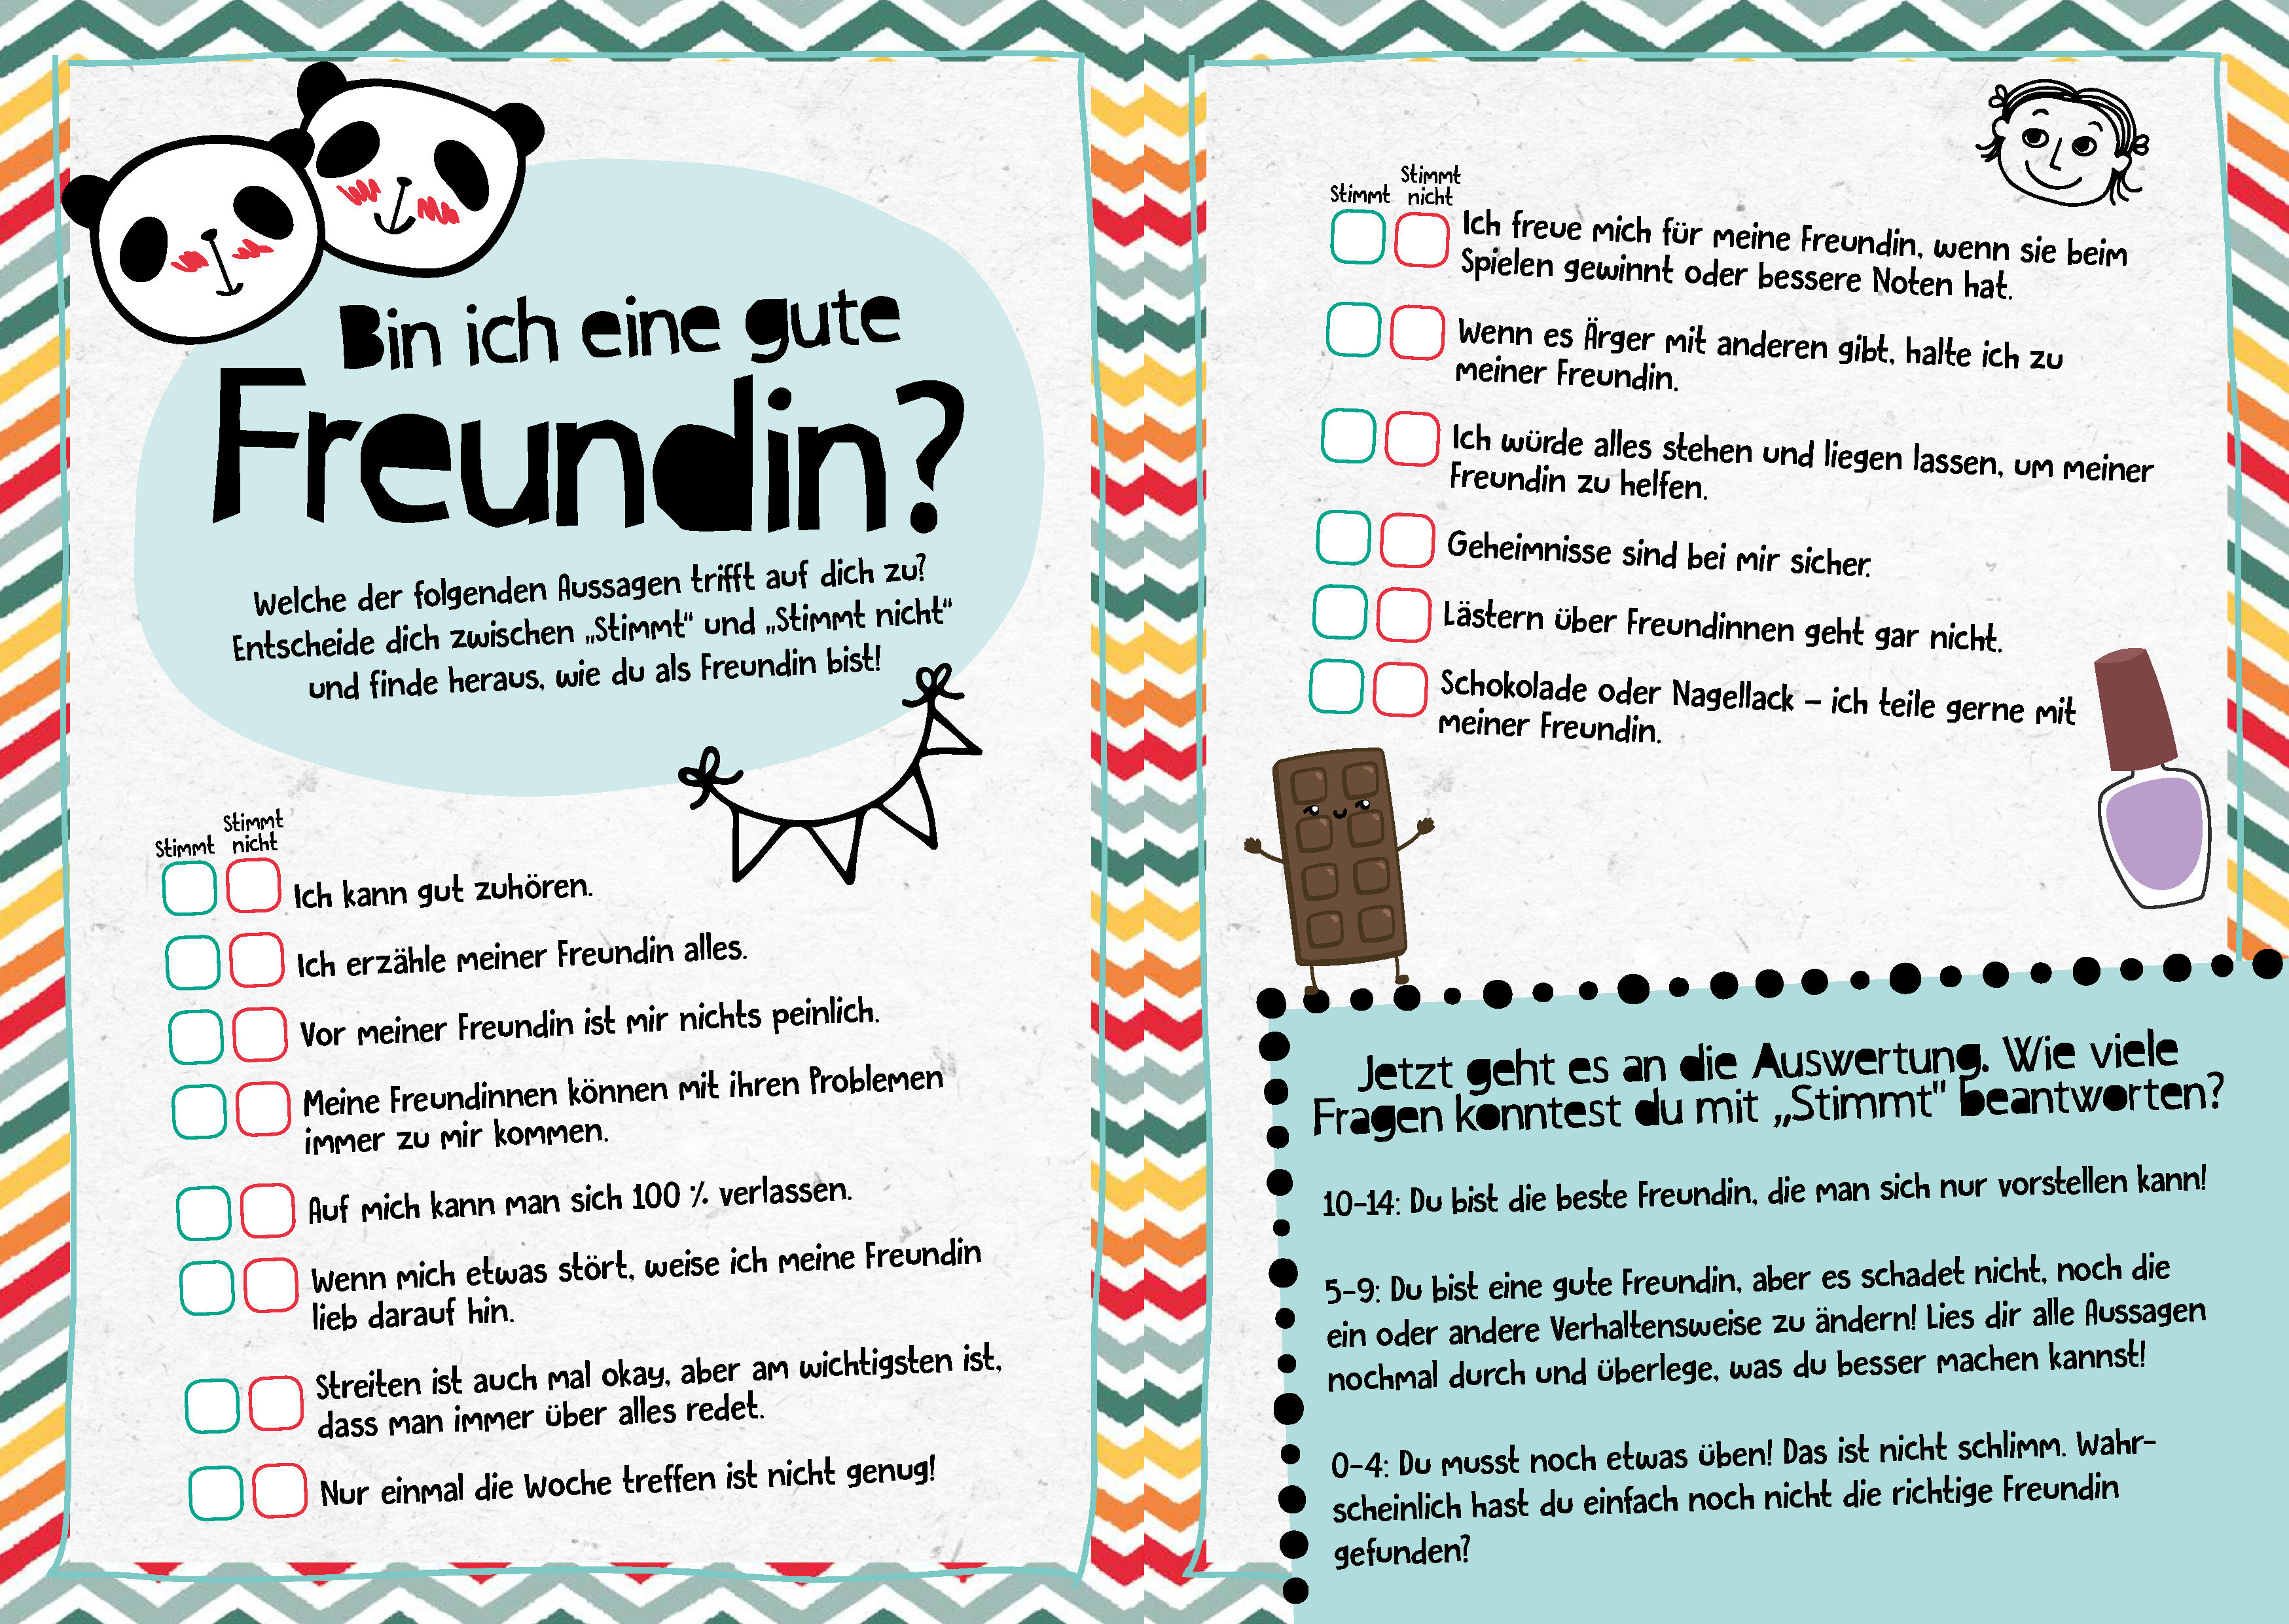 Bin ich eine gute
Freundin?
Welche der folgenden Aussagen trifft auf dich zu?
Entscheide dich zwischen „Stimmt“ und „Stimmt nicht“
und finde heraus, wie du als Freundin bist!
Stimmt
Stimmt
nicht
Ich kann gut zuhören.
Ich erzähle meiner Freundin alles.
Vor meiner Freundin ist mir nichts peinlich.
Meine Freundinnen können mit ihren Problemen
immer zu mir kommen.
Auf mich kann man sich 100 % verlassen.
Wenn mich etwas stört, weise ich meine Freundin
lieb darauf hin.
Streiten ist auch mal okay, aber am wichtigsten ist,
dass man immer über alles redet.
Nur einmal die Woche treffen ist nicht genug!
Stimmt
Stimmt
nicht
Ich freue mich für meine Freundin, wenn sie beim
Spielen gewinnt oder bessere Noten hat.
Wenn es Ärger mit anderen gibt, halte ich zu
meiner Freundin.
Ich würde alles stehen und liegen lassen, um meiner
Freundin zu helfen.
Geheimnisse sind bei mir sicher.
Lästern über Freundinnen geht gar nicht.
Schokolade oder Nagellack – ich teile gerne mit
meiner Freundin.
Jetzt geht es an die Auswertung. Wie viele
Fragen konntest du mit „Stimmt“ beantworten?
10–14: Du bist die beste Freundin, die man sich nur vorstellen kann!
5–9: Du bist eine gute Freundin, aber es schadet nicht, noch die
ein oder andere Verhaltensweise zu ändern! Lies dir alle Aussagen
nochmal durch und überlege, was du besser machen kannst!
0–4: Du musst noch etwas üben! Das ist nicht schlimm. Wahr-
scheinlich hast du einfach noch nicht die richtige Freundin
gefunden?